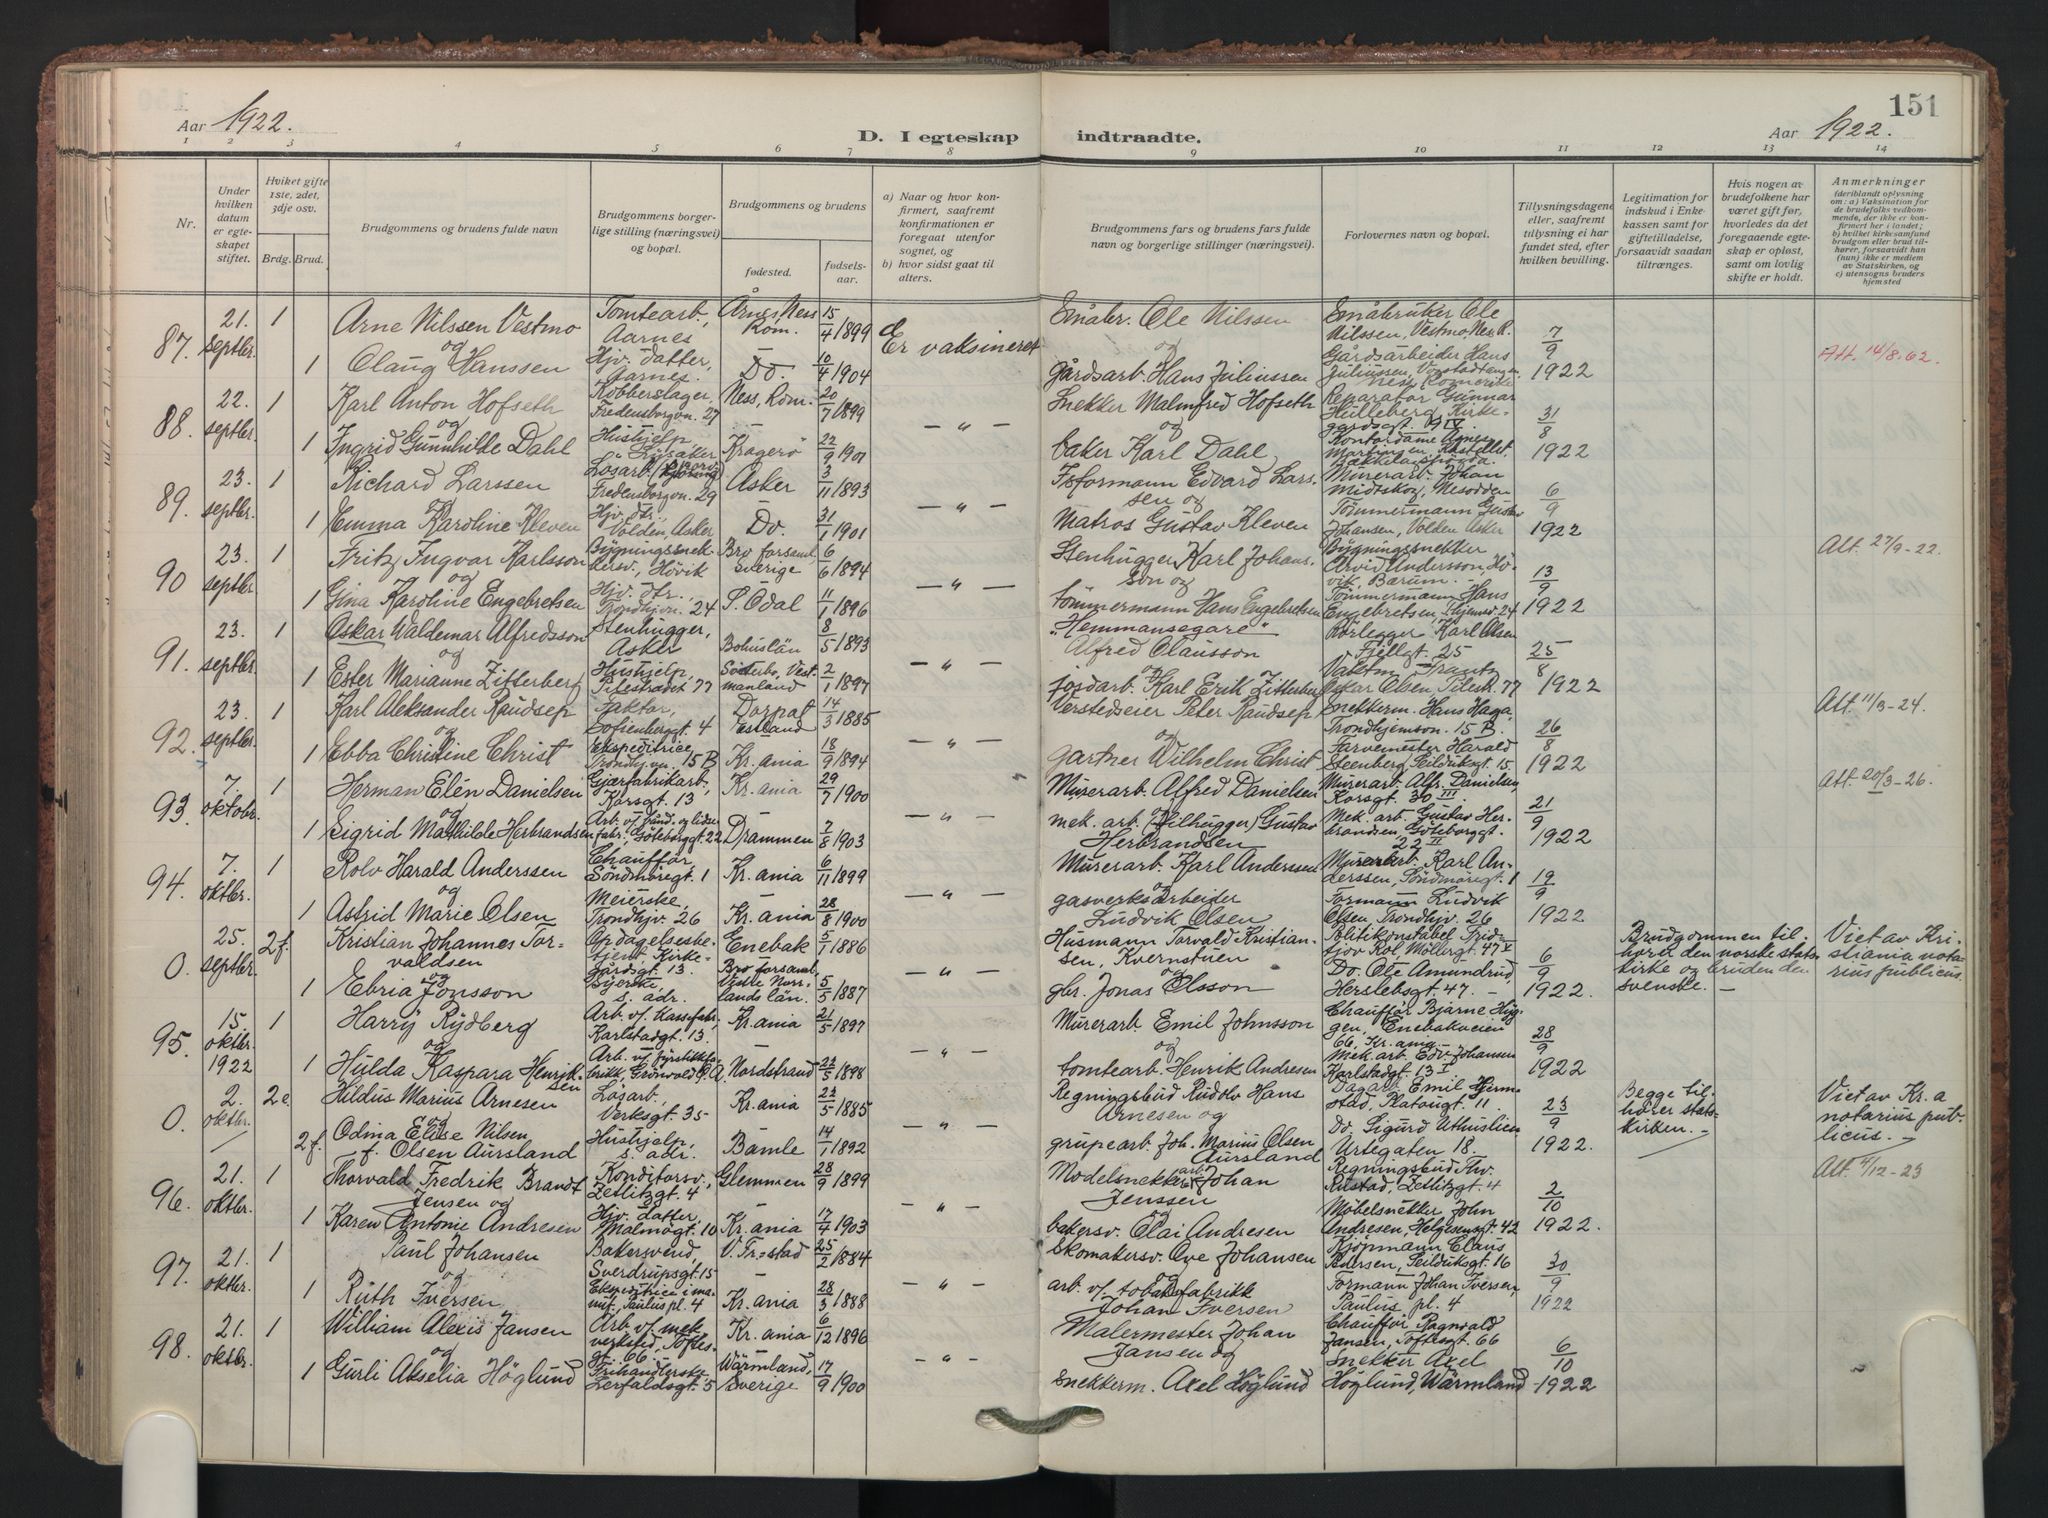 151
Aar 1922.
D. I egteskap indtraadte.
Aar 1922.
1 2 3 4 5 6 7 8 9 10 11 12 13 14
Nr.
Under hvilken datum er egteskapet stiftet.
Hviket gifte 1ste, 2det, 3dje osv.
Brdg. Brud.
Brudgommens og brudens fulde navn
Brudgommens borgerlige stilling (næringsvei) og bopæl.
Brudgommens og brudens
fødested.
fødselsaar.
a) Naar og hvor konfirmert, saafremt konfirmationen er foregaat utenfor sognet, og
b) hvor sidst gaat til alters.
Brudgommens fars og brudens fars fulde navn og borgerlige stillinger (næringsvei).
Forlovernes navn og bopæl.
Tillysningsdagene eller, saafremt tillysning ei har fundet sted, efter hvilken bevilling.
Legitimation for indskud i Enkekassen samt for giftetilladelse, forsaavidt saadan tiltrænges.
Hvis nogen av brudefolkene har været gift før, hvorledes da det foregaaende egteskap er opløst, samt om lovlig skifte er holdt.
Anmerkninger
(deriblandt oplysning om: a) Vaksination for de brudefolks vedkommende, der ikke er konfirmert her i landet; b) hvilket kirkesamfund brudgom eller brud tilhører, forsaavidt han (hun) ikke er medlem av Statskirken, og c) utensogns bruders hjemsted
87. 21. septbr. 1 Arne Nilssen Vestmo Tomtearb., Aarnes Årnes, Ness Rom. 15/4 1899 Er vaksineret Småbr. Ole Nilssen Småbruker Ole Nilssen, Vestmo, Nes R. 7/9 1922
og
1 Olaug Hanssen Hjv. datter, Aarnes. Do. 10/4 1904 gårdsarb. Hans Juliussen Gårdsarbeider Hans Juliussen, Ness Romerike Att. 14/8. 62.
88. 22. septbr. 1 Karl Anton Hofseth Kobberslager, Fredensborgvn. 27 Ness, Rom. 20/7 1899 — " — Snekker Malmfred Hofseth Reparatør Gunnar Hulleberg, Kirkegårdsgt. 9 IV 31/8 1922
og
1 Ingrid Gunnhilde Dahl Hushjelp, Lysaker Kragerö 22/9 1901 baker Karl Dahl Kontordame Agnes
89. 23. septbr. 1 Richard Larssen Løsarb. Fredensborgvn. 29 Asker 3/11 1893 — " — Isformann Edvard Larssen og Murerarb. Johan Midtskog, Nesodden 6/9 1922
1 Emma Karoline Kleven Hjv. dtr. Volden, Asker Do 31/1 1901 Matros Gustav Kleven Tømmermann Gustav Johansen, Volden Asker
90 23. septbr. 1 Fritz Ingvar Karlsson Bygningssnekkersv., Hövik Bro forsaml, Sverige 6/6 1894 — " — Stenhugger Karl Johansson og Bygningssnekker Arvid Andersson, Hövik, Bærum. 13/9 1922 Att. 27/9-22.
og
1 Gina Karoline Engebretsen Hjv. dtr., Trondhjvn. 24 S. Odal 11/1 1896 tömmermann Hans Engebretsen Tømmermann Hans Engebretsen, Thjemsv. 24
91. 23. septbr. 1 Askar Waldemar Alfredsson Stenhugger, Asker Bohuslän 8/5 1893 — " — "Hemmansegare" Alfred Olausson Rörlegger Karl Olsen Fjellgt. 25 25/8 1922
og
1 Ester Marianne Zitterberg Hushjelp, Pilestrædet 77 Vestmanland 2/1 1897 jordarb. Karl Erik Zitterberg Oskar Olsen, Pilestr. 77
92. 23. septbr. 1 Karl Aleksander Raudsep Faktor, Sofienberggt. 4 Dorpat Estland 14/3 1885 — " — Verstedseier Peter Raudsep Snekkerm. Hans Haga, Trondhjemsvn. 15 B. 26/8 1922 Att. 11/3-24.
og
1 Ebba Christine Christ Ekspeditrice, Trondhj.vn. 15 B Kr. ania 18/9 1894 gartner Wilhelm Christ Farvemester Harald Steenberg, Seilduksgt. 15
93. 7. oktobr. 1 Herman Elén Danielsen Gjærfabrikarb., Korsgt. 13 Kr. ania 29/7 1900 — " — Murerarb. Alfred Danielsen Murerarb. Alfr. Danielsen Korsgt. 30 III 21/9 1922 Att. 20/3-26.
og
1 Sigrid Mathilde Herbrandsen Göteborggt. 22 Drammen 7/8 1903 mek. arb. (Filhugger) Gustav Herbrandsen Mek. arb. Gustav Herbrandsen, Göteborggt. 22 II
94. 7. oktbr. 1 Rolv Harald Anderssen Chauffør Söndmöregt. 1 Kr. ania 6/11 1899 — " — Murerarb. Karl Anderssen Murerarb. Karl Anderssen, Söndmöregt. 1 19/9 1922
og
1 Astrid Marie Olsen Meierske, Trondhjv. 26 Kr. ania 28/8 1900 gasverksarbeider Ludvik Olsen Formann Ludvik Olsen, Trondhjv. 26
0. 25. septbr. 2 f. Kristian Johannes Torvaldsen Opdagelsesbetjent, Kirkegårdsgt. 13. Enebak 5/1 1886 — " — Husmann Torvald Kristiansen, Kvernstuen Politikonstabel Fridtjov Rol, Möllergt. 47 V 6/9 1922. Brudgommen tilhører den norske statskirke og bruden den svenske. — Viet av Kristiania notarius publicus.
og
1 Ebria Jonsson Syerske, s. adr. Bro forsaml. Norrlands län. 5/5 1887 gbr. Jonas Olsson Do. Ole Amundrud, Herslebsgt. 47. —
95. 15. oktbr. 1922 1 Harry Rydberg Arb. v/ kassefabr., Karlstadgt. 13. Kr. ania 21/5 1897 — " — Murerarb. Emil Johnsson Chauffør Bjarne Huggen, Enebakveien 66, Kr. ania 28/9 1922
og
1 Hulda Kaspara Henriksen Arb. v/ fyrstikkfabrikk, Grönvold Ö. A. Nordstrand 22/5 1898 tomtearb. Henrik Andresen Mek. arb. Edv. Johansen Karlstadgt. 13 I
0. 2. oktbr. 2 e. Hildus Marius Arnesen Løsarb., Verksgt. 35 Kr. ania 22/5 1885 — " — Regningsbud Rudolv Hans Arnesen og Dagarb. Emil Hjermstad, Platougt. 11 23/9 1922. Begge tilhører statskirken. — Viet av Kr. a notarius publicus. —
og
2 f. Odina Elise Nilsen f. Olsen Aursland Hushjelp, s. adr. Bamle 14/1 1892 grupearb. Joh. Marius Olsen Aursland Do. Sigurd Urtegaten 18.
96. 21. oktbr. 1 Thorvald Fredrik Brandt Jensen og Konditorsv., Zetlitzgt. 4 Glemmen 28/9 1899 — " — Modelsnekkerarb. Johan Jenssen Regningsbud Thv. Rustad, Zetlitzgt. 4 2/10 1922. Att. 4/12-23
1 Karen Antonie Andresen Hjv. datter, Malmøgt. 10 Kr. ania 17/4 1903 bakersv. Olai Andresen Møbelsnekker John Andresen, Helgesensgt. 42
97. 21. oktbr. 1 Paul Johansen Bakersvend, Sverdrupsgt. 15 V. Fr=stad 25/2 1884 — " — Skomakersv. Ove Johansen Kjöpmann Claus Pedersen, Seilduksgt. 16 30/9 1922
og
1 Ruth Iversen Ekspeditrice i manuf., Paulus pl. 4 Kr. ania 28/3 1888 arb. v/ tobaksfabrikk Johan Iversen Formann Johan Iversen Paulus pl. 4
98. 21. oktbr. 1 William Alexis Jansen Arb. v/ mek verksted, Toftesgt. 66. Kr. ania 6/12 1896 — " — Malermester Johan Jansen og Chauffør Ragnvald Jansen, Toftesgt. 66 6/10 1922
og
1 Gurli Akselia Höglund Frihandlerske, Zerfaldsgt. 5 Wärmland, Sverige 17/9 1900 snekkerm. Axel Höglund Snekker Axel Höglund, Wärmland